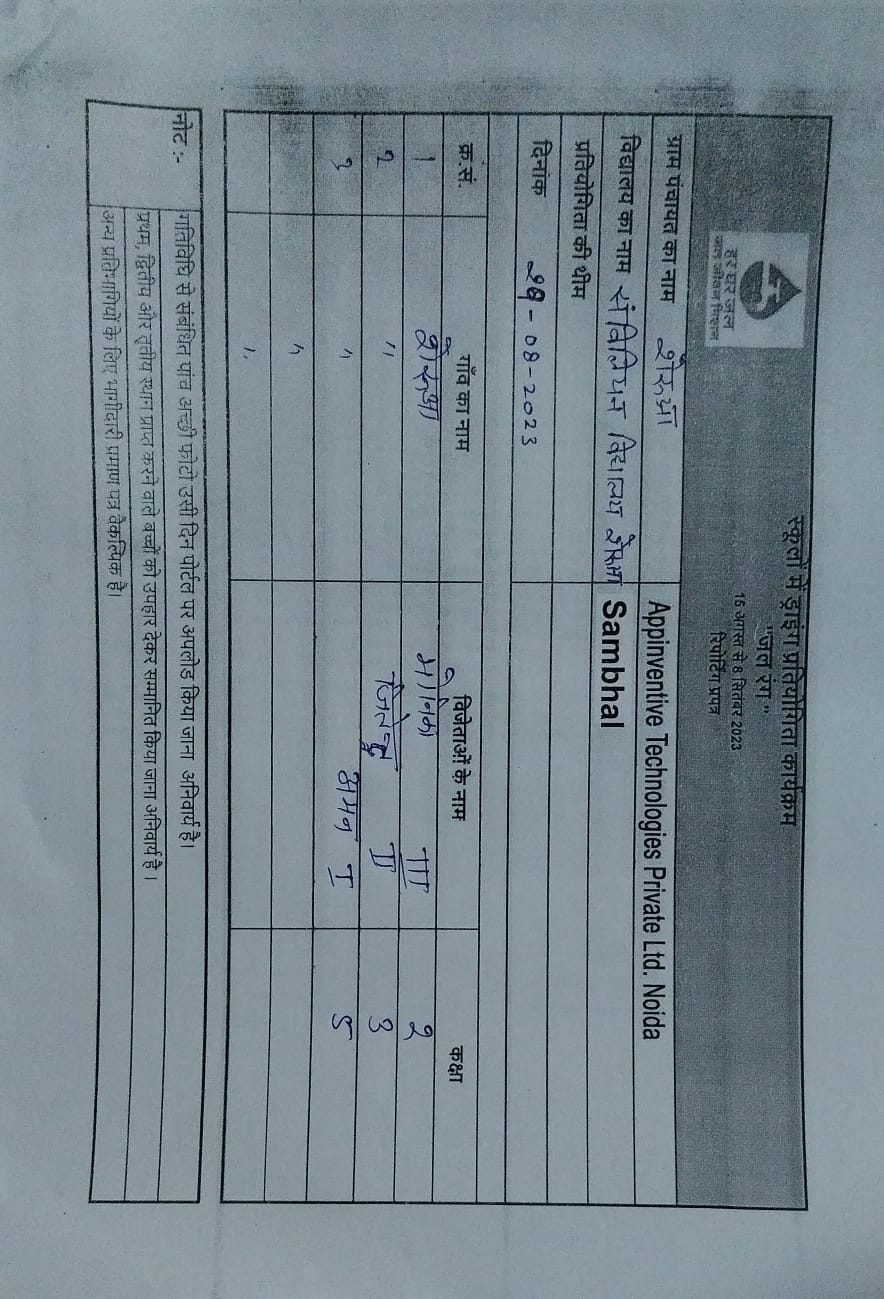 हर घर जल
जल जीवन मिशन
स्कूलों में ड्राइंग प्रतियोगिता कार्यक्रम
"जल रंग"
16 अगस्त से 8 सितंबर 2023
रिपोर्टिंग प्रपत्र
ग्राम पंचायत का नाम Appinventive Technologies Private Ltd. Noida
विद्यालय का नाम संविलियन विद्यालय Sambhal
प्रतियोगिता की थीम
दिनांक 29-08-2023
क्र.सं. गाँव का नाम विजेताओं के नाम कक्षा
1 III 2
२ " जितेन्द्र II 3
३ " अमन I ५
"
".
नोट :- गतिविधि से संबंधित पांच अच्छी फोटो उसी दिन पोर्टल पर अपलोड किया जाना अनिवार्य है।
प्रथम, द्वितीय और तृतीय स्थान प्राप्त करने वाले बच्चों को उपहार देकर सम्मानित किया जाना अनिवार्य है।
अन्य प्रतिभागियों के लिए भागीदारी प्रमाण पत्र वैकल्पिक है।